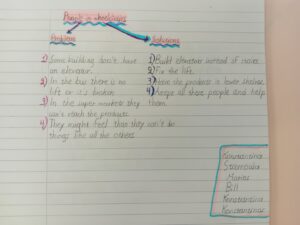 People in wheelchairs
Problems
Solutions
1) Some building don't have an elevator.
2) In the bus there is no lift or it's broken
3) In the super markets they can't reach the products.
4) They might feel that they can't do things like all the others.
1) Build elevators instead of stairs
2) Fix the lift.
3) Have the products in lower shelves.
4) Keeps all these people and help them.
Konstantinos
Stavroula
Marios
Bill
Konstantina
Konstantinos